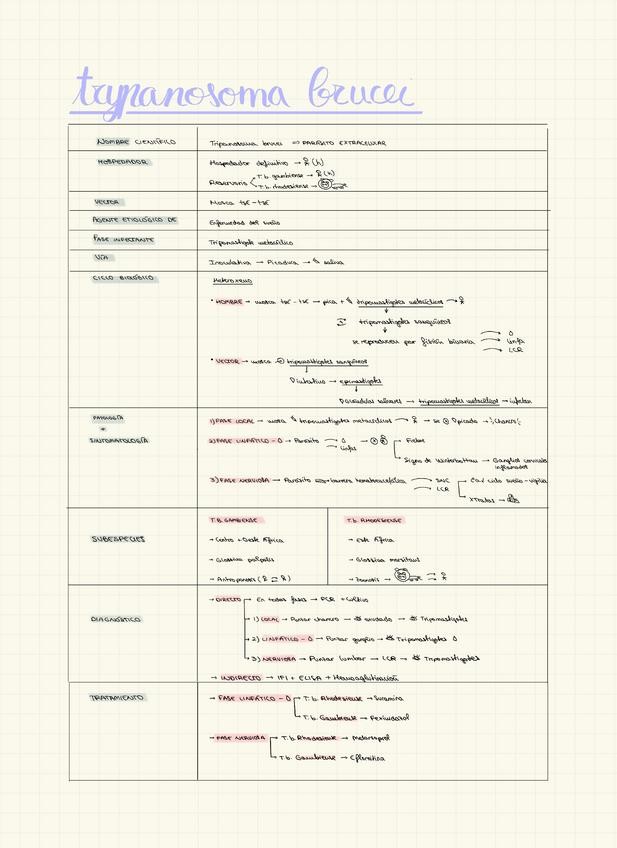 trypanosoma brucei
NOMBRE CIENTÍFICO
Tripanosoma brucei ⇨ PARÁSITO EXTRACELULAR
HOSPEDADOR
Hospedador definitivo → (h)
Reservorio
T.b. gambiense → (h)
T.b. rhodesiense →
VECTOR
Mosca tsé-tsé
AGENTE ETIOLÓGICO DE
Enfermedad del sueño
FASE INFECTANTE
Tripomastigote metacíclico
VÍA
Inoculativa → Picadura → saliva
CICLO BIOLÓGICO
Heteroxeno
• HOMBRE → mosca tsé-tsé → pica + tripomastigotes metacíclicos →
tripomastigotes sanguíneos
se reproducen por fisión binaria
linfa
LCR
• VECTOR → mosca tripomastigotes sanguíneos
Divertículo → epimastigotes
salivares → tripomastigotes metacíclicos → infectan
PATOLOGÍA
+
SINTOMATOLOGÍA
1) FASE LOCAL → mosca tripomastigotes metacíclicos → se picado → chancro
2) FASE LINFÁTICO - → Parásito →
linfa
Fiebre
Signo de Winterbottom → Ganglios cervicales
inflamados
3) FASE NERVIOSA → Parásito barrera hematoencefálica → SNC
LCR
ciclo sueño-vigilia
SUBESPECIES
T.B. GAMBIENSE
→ Centro + Oeste África
→ Glossina palpalis
→ Antroponosis
T.B. RHODESIENSE
→ Este África
→ Glossina morsitans
→ Zoonosis →
DIAGNÓSTICO
→ DIRECTO
En todas fases → PCR + Cultivo
1) LOCAL → Punzar chancro → exudado → Tripomastigotes
2) LINFÁTICO - → Punzar ganglio → Tripomastigotes
3) NERVIOSA → Punzar lumbar → LCR → Tripomastigotes
→ INDIRECTO → IFI + ELISA + Hemaglutinación
TRATAMIENTO
→ FASE LINFÁTICO -
T.b. Rhodesiense → Suramina
T.b. Gambiense →
→ FASE NERVIOSA
T.b. Rhodesiense → Melarsoprol
T.b. Gambiense → Eflornitina